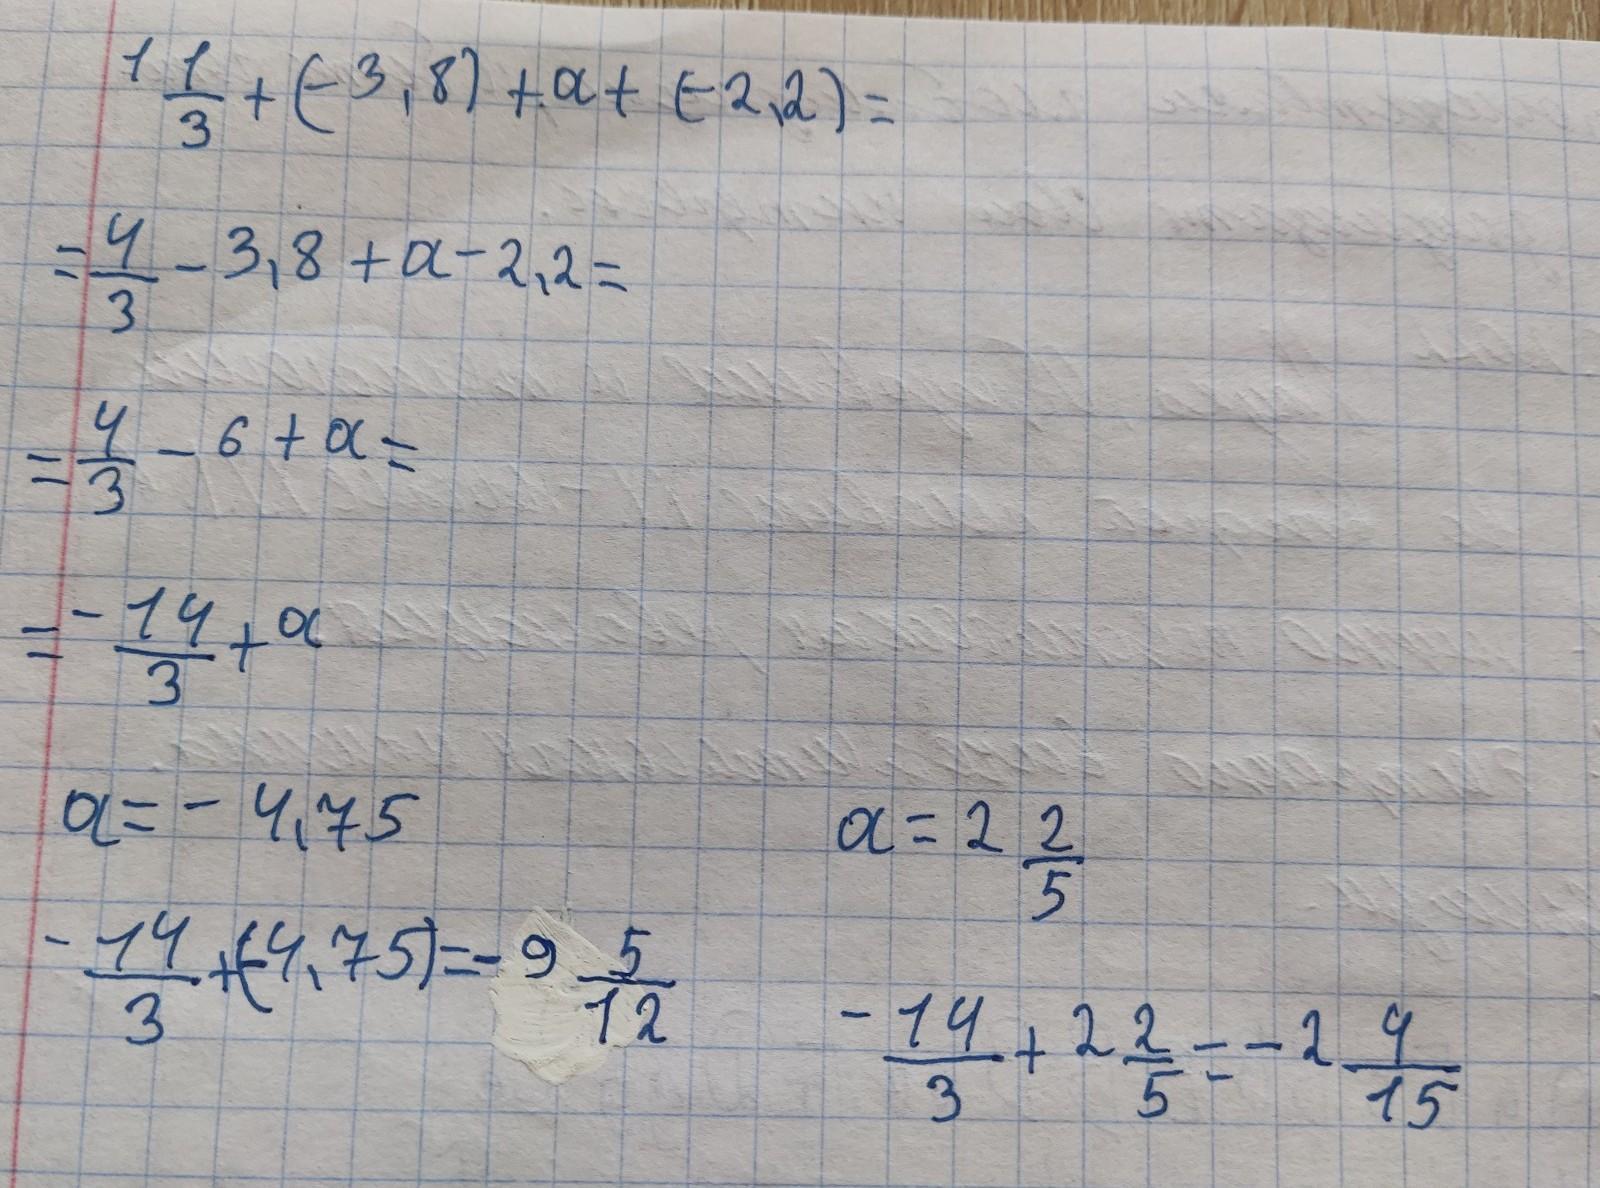 1 1/3 + (-3,8) + a + (-2,2) =
= 4/3 - 3,8 + a - 2,2 =
= 4/3 - 6 + a =
= - 14/3 + a
a = - 4,75
- 14/3 + (-4,75) = - 9 5/12
a = 2 2/5
- 14/3 + 2 2/5 = - 2 4/15